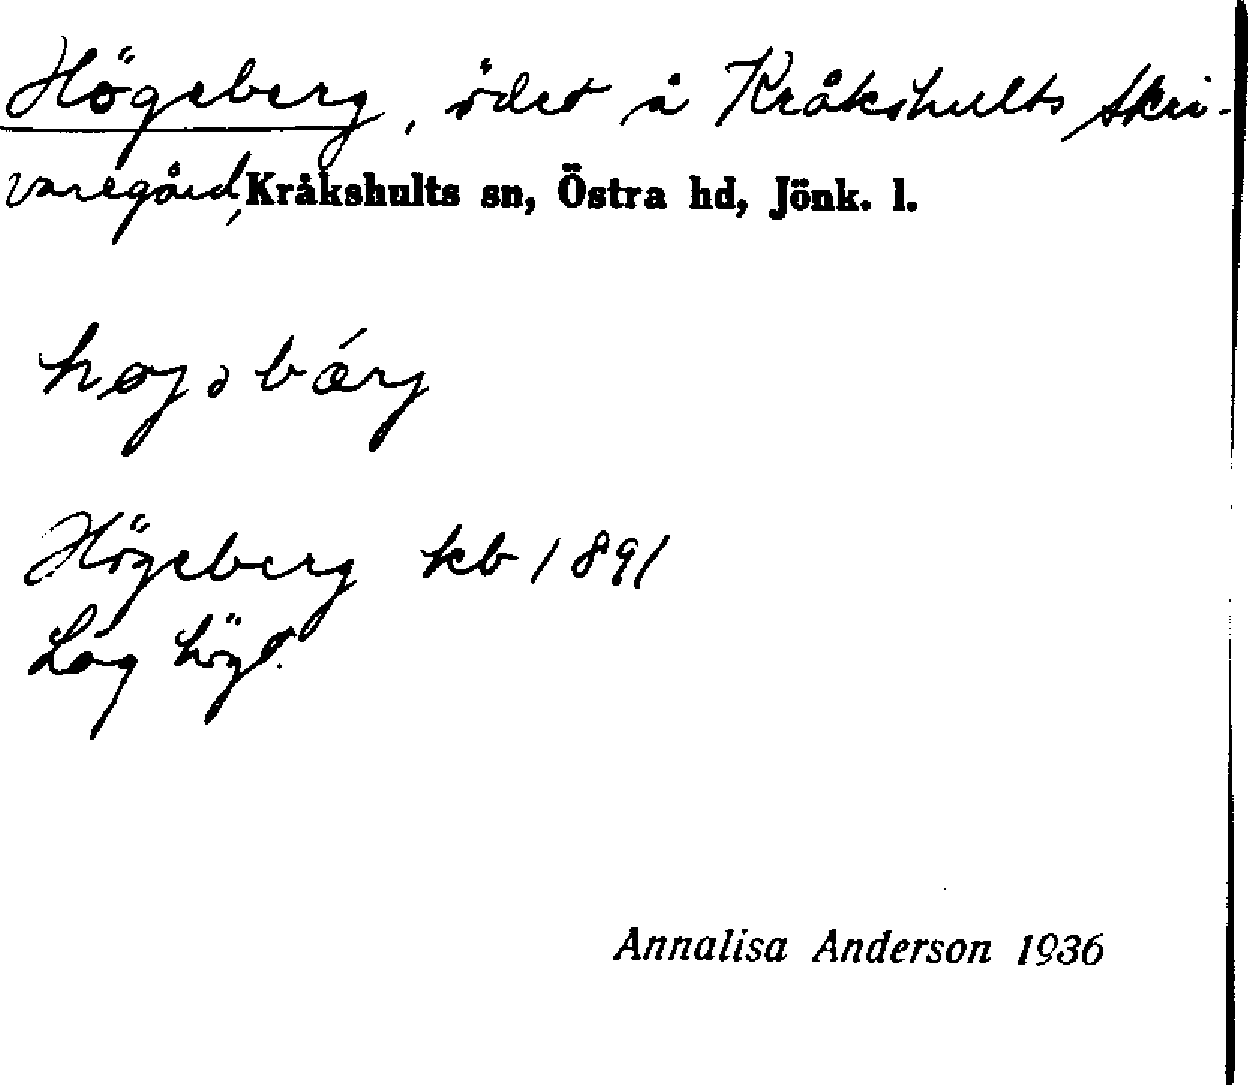 Högeberg, ödet å Kråkshults Skri-
varegård, Kråkshults sn, Östra hd, Jönk. l.
højəbǽrj
Högeberg kb 1891
Låg högt.
Annalisa Anderson 1936